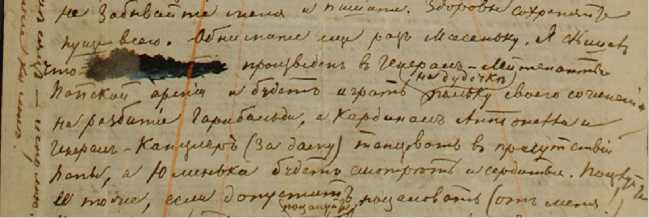 не забывайте меня и пишите. Здоровье сохраняйте
пуще всего. Обнимаю еще разъ Масеньку. Я слышалъ
что произведенъ въ Генералъ-Лейтенанты
Папской арміи и будетъ играть на дудочкѣ польку своего сочиненія
на разбитіе Гарибальди, а Кардиналъ Антонелли и
Генералъ-Канцлеръ (за даму) танцовать въ присутствіи
Папы, а Юлинька будетъ смотрѣть и сердиться.
ее тоже, если допуститъ поцаловать (отъ меня)